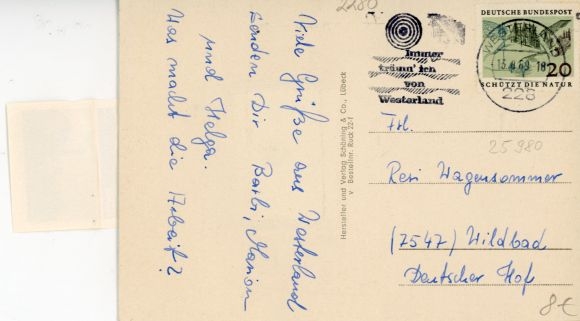 Viele Grüße aus Westerland
senden Dir Barbi, Marion
und Helga.
Was macht die Arbeit?
Hersteller und Verlag Schöning & Co., Lübeck
Bestellnr. Rück 22-f
2280
Immer
träum' ich
von
Westerland
DEUTSCHE BUNDESPOST
20
SCHÜTZT DIE NATUR
WESTERLAND
228
Frl.
25980
Resi Wagensommer
(7547) Wildbad
Deutscher Hof
8€